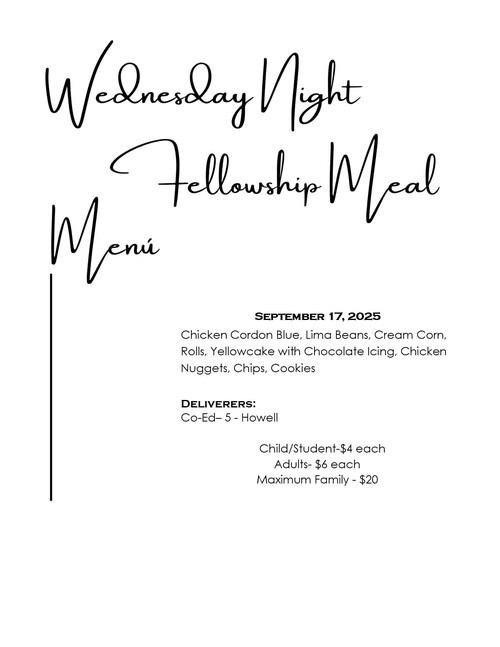 Wednesday Night
Fellowship Meal
Menú
September 17, 2025
Chicken Cordon Blue, Lima Beans, Cream Corn,
Rolls, Yellowcake with Chocolate Icing, Chicken
Nuggets, Chips, Cookies
Deliverers:
Co-Ed– 5 - Howell
Child/Student-$4 each
Adults- $6 each
Maximum Family - $20